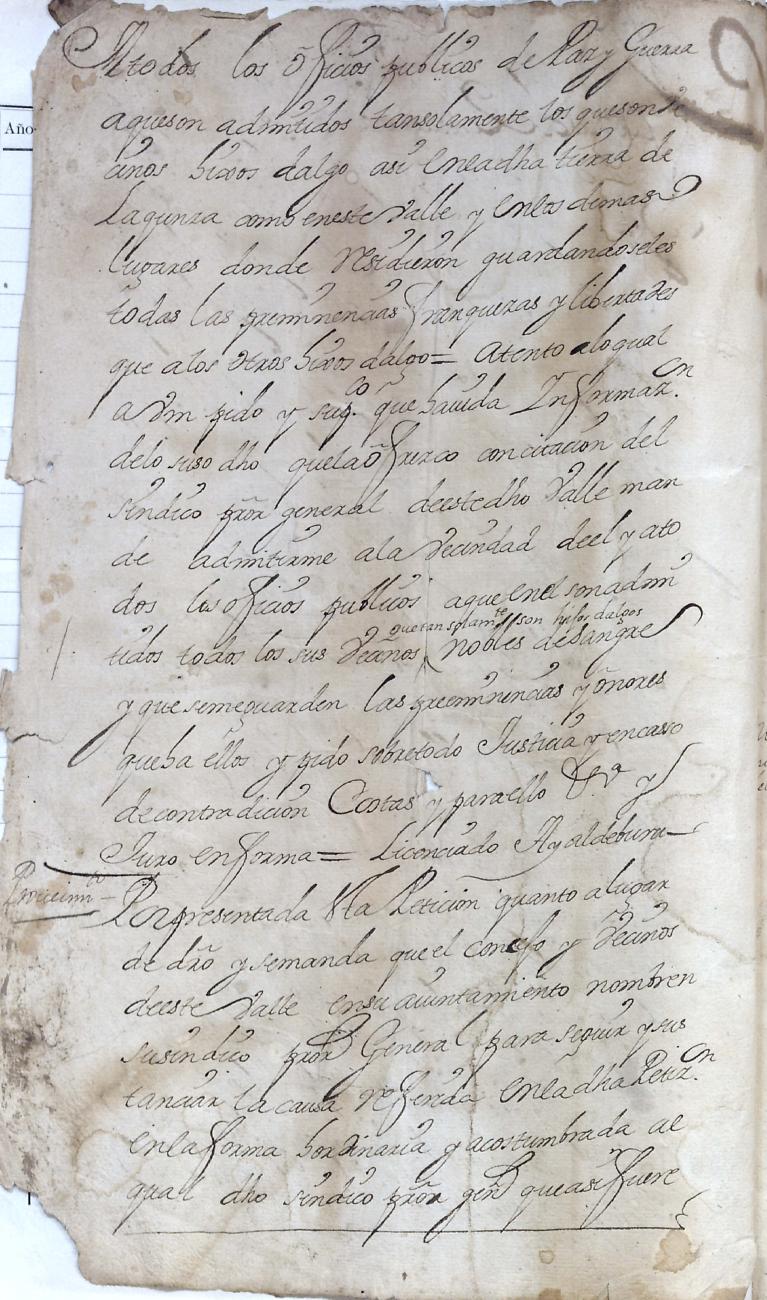 Año
Atodos los oficios publicos de Paz y Guerra
aqueson admitidos tansolamente los queson Ve
cinos hixos dalgo asi enladha tierra de
Lagunza como eneste Valle y enlos demas
lugares donde residieron guardandoseles
todas las preminencias franquezas y libertades
que alos otros hixos dalgo = Atento aloqual
a Vm pido y supco que hauida Informazon
delo suso dho quelaofrezco concitacion del
sindico pror general deestedho Valle man
de admitirme ala Vecindad deel y ato
dos los oficios publicos aque enel sonadmi
que tan solamte son hijos dalgos
tidos todos los sus Vecinos nobles desangre
y que semeguarden las preeminencias y onores
queha ellos y pido sobretodo Justicia y encaso
decontradicion Costas y paraello Va y
Juro enforma = Licenciado Ayaldeburu
Proueimto
Porpresentada Sta Peticion quanto alugar
de dro y semanda que el concejo y Vecinos
deeste Valle ensu aiuntamiento nombren
susindico pror General para seguir y sus
tanciar la causa referida enladha Petizon
enlaforma hordinaria y acostumbrada al
qual dho sindico pror genl queasi fuere